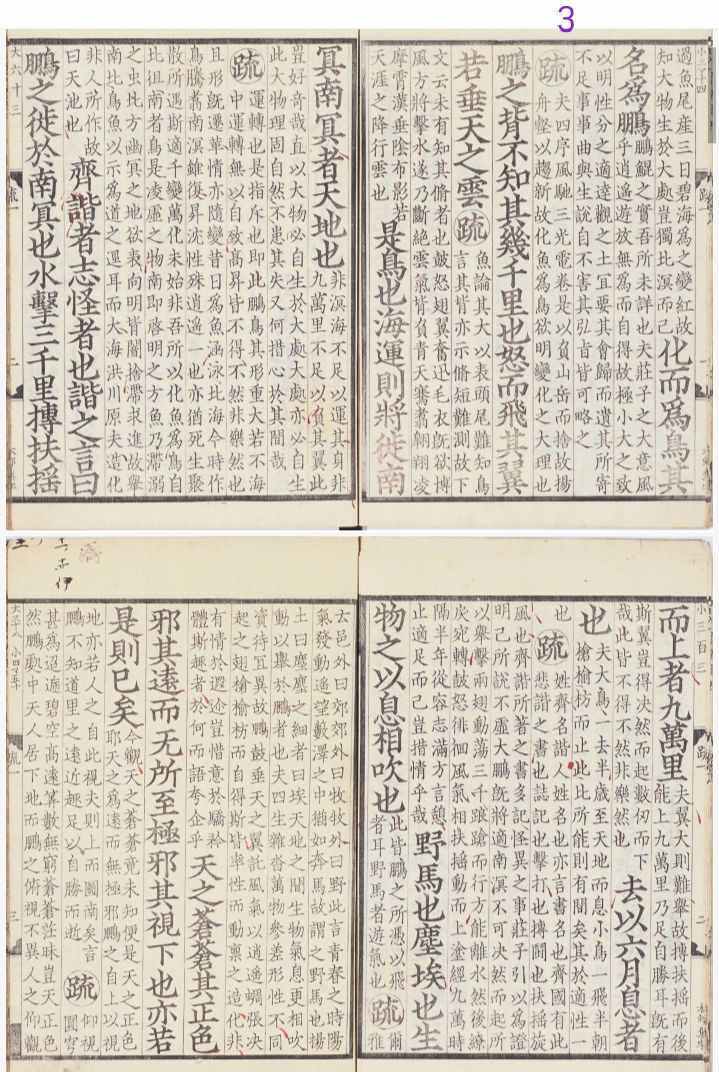 3
過魚尾産三日碧海為之變紅故
知大物生於大處豈獨比溟而己
化而為鳥其
名為鵬
鵬鯤之實吾所未詳也夫莊子之大意風
乎逍遥遊放無為而自得故極小大之致
以明性分之適達觀之士冝要其會歸而遺其所寄
不足事事曲與生說自不害其弘旨皆可略之
疏
夫四序風馳三光電卷是以負山岳而捨故揚
舟壑以趨新故化魚為鳥欲明變化之大理也
鵬之背不知其幾千里也怒而飛其翼
若垂天之雲疏
魚論其大以表頭尾難知鳥
言其背亦示脩短難測故下
文云未有知其脩者也鼓怒翅翼奮迅毛衣旣欲摶
風方將擊水遂乃斷絶雲氣背負青天騫翥翱翔凌
摩霄漢垂陰布影若
天涯之降行雲也
是鳥也海運則將徙南
冥南冥者天地也
非溟海不足以運其身非
九萬里不足以負其翼此
豈好奇哉直以大物必自生於大處大處亦必自生
此大物理固自然不患其失又何措心於其間哉
疏
運轉也是指斥也即此鵬鳥其形重大若不海
中運轉無以自致高昇皆不得不然非樂然也
且形旣遷革情亦隨變昔日為魚涵泳北海今時作
鳥騰翥南溟雖復昇沉性殊逍遥一也亦猶死生聚
散所遇斯適千變萬化未始非吾所以化魚為鳥自
北徂南者鳥是凌虛之物南即啓明之方魚乃滯溺
之虫北方幽冥之地欲表向明背闇捨滯求進故舉
南北鳥魚以示為道之逕耳而大海洪川原夫造化
非人所作故
曰天池也
齊諧者志怪者也諧之言曰
鵬之徙於南冥也水擊三千里摶扶揺
而上者九萬里
夫翼大則難舉故摶扶揺而後
能上九萬里乃足自勝耳旣有
斯翼豈得決然而起數仞而下
哉此皆不得不然非樂然也
去以六月息者
也
夫大鳥一去半歲至天地而息小鳥一飛半朝
槍榆枋而止此比所能則有間矣其於適性一
也
疏
姓齊名諧人姓名也亦言書名也齊國有此
俳諧之書也誌記也擊打也摶鬪也扶揺旋
風也齊諧所著之書多記怪異之事莊子引以為證
明己所說不虛大鵬旣將適南溟不可決然而起所
以舉擊兩翅動蕩三千踉蹌而行方能離水然後繚
戾宛轉鼓怒徘徊風氣相扶揺動而上塗經九萬時
隔半年從容志滿方言憩
止適足而己豈措情乎哉
野馬也塵埃也生
物之以息相吹也
此皆鵬之所憑以飛
者耳野馬者遊氣也
疏
爾
雅
云邑外曰郊郊外曰牧牧外曰野此言青春之時陽
氣發動遥望藪澤之中猶如奔馬故謂之野馬也揚
土曰塵塵之細者曰埃天地之間生物氣息更相吹
動以舉於鵬者也夫四生雜沓萬物參差形性不同
資待冝異故鵬鼓垂天之翼託風氣以逍遥蜩張決
起之翅槍榆枋而自得斯皆率性而動稟之造化非
有情於遐迩豈惜意於驕矜
體斯趣者於何而語夸企乎
天之蒼蒼其正色
邪其遠而无所至極邪其視下也亦若
是則已矣
今觀天之蒼蒼竟未知便是天之正色
耶天之為遠而無極邪鵬之自上以視
地亦若人之自此視夫則上而圖南矣言
鵬不知道里之遠近趣足以自勝而逝
疏
仰視
圓穹
甚為迢遞碧空高遠筭數無窮蒼蒼茫昧豈天正色
然鵬處中天人居下地而鵬之俯視不異人之仰觀